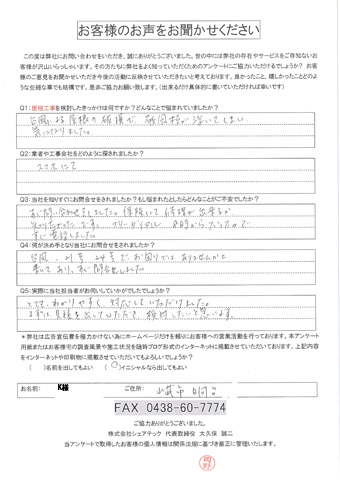 お客様のお声をお聞かせください
この度は弊社にお問い合わせをいただき、誠にありがとうございました。世の中には弊社の存在やサービスをご存知ないお
客様が沢山いらっしゃいます。その方たちに弊社をよく知っていただくためのアンケートにご協力いただけるでしょうか? お客
様のご意見をお聞かせいただき今後の活動に反映させていただきたいと考えております。良かったこと、嬉しかったことどのよ
うな些細な事でも結構です。是非ご協力お願い致します。(出来るだけ具体的に書いていただければ幸いです)
Q1:屋根工事を検討したきっかけは何ですか?どんなことで悩まれていましたか?
台風による屋根の破損で 破風板が浮いてしまい
気になりました。
Q2:業者や工事会社をどのように探されましたか?
スマホにて
Q3:当社を知りすぐにお問合せをされましたか?もし悩まれたとしたらどんなことがご不安でしたか?
すぐ問い合わせをしました。保険にて修理が出来るか
知りたかったです。フリーダイヤル 8時から
すぐ電話しました。
Q4:何が決め手となり当社にお問合せをされましたか?
台風、21号 24号でお困りではありませんかと
書いてあり、すぐ問合せしました。
Q5:実際に当社担当者がお伺いしていかがでしたでしょうか?
とても、わかりやすく、対応していただけました。
まずは、見積を出してもらって、検討したいと思います。
*弊社は広告宣伝費を極力かけない為にホームページだけを頼りにお客様への営業活動を行っております。本アンケート
用紙またはお客様宅の調査風景や施工状況を随時ブログ形式のインターネットに掲載させていただいております。上記内容
をインターネットや印刷物に掲載させていただいてもよろしいでしょうか?
( )名前を出してもよい (○)イニシャルなら出してもよい
お名前: K様 ご住所:
FAX 0438-60-7774
ご協力ありがとうございました。
株式会社シェアテック 代表取締役 大久保 誠二
当アンケートで取得したお客様の個人情報は関係法規に基づき厳正に管理いたします。